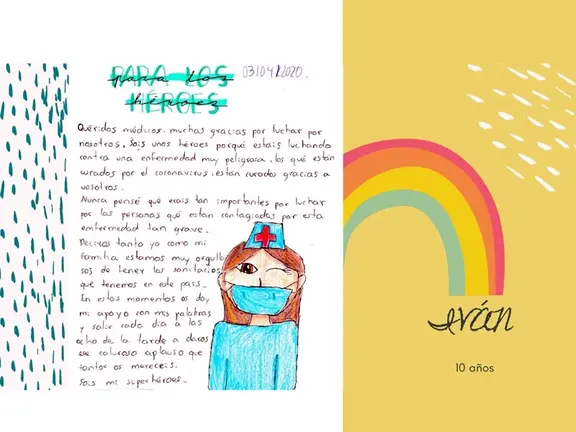 PARA LOS
para los
HÉROES
héroes
03/04/2020.
Queridos médicos, muchas gracias por luchar por
nosotros. Sois unos héroes porque estais luchando
contra una enfermedad muy peligrosa. los que están
curados por el coronavirus, están curados gracias a
vosotros.
Nunca pensé que erais tan importantes por luchar
por las personas que están contagiados por esta
enfermedad tan grave.
Deciros tanto yo como mi
familia estamos muy orgullo
sos de tener los sanitarios
que tenemos en este país.
En estos momentos os doy
mi apoyo con mis palabras
y salir cada día a las
ocho de la tarde a daros
ese caluroso aplauso que
tantos os mereceis.
Sois mi superhéroes.
iván
10 años